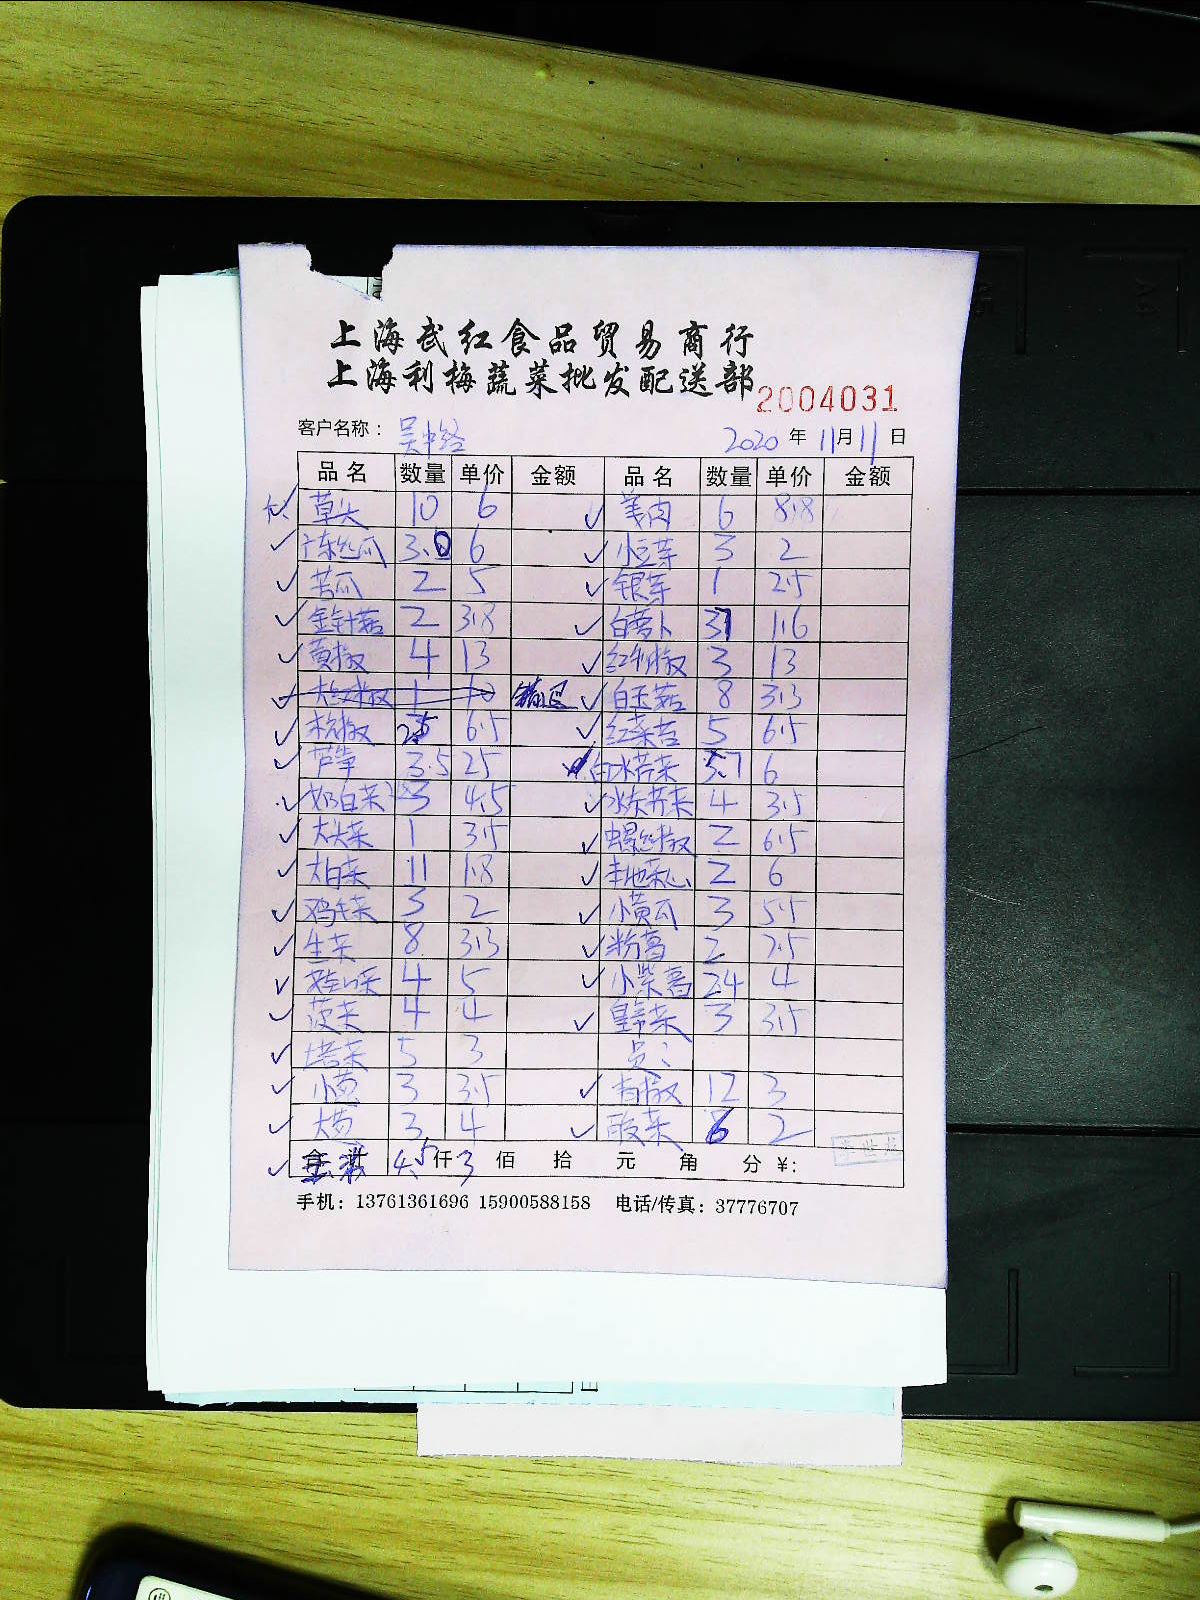 上海武红食品贸易商行
上海利梅蔬菜批发配送部
2004031
客户名称： 吴中路 2020 年 11 月 11 日
品名 数量 单价 金额 品名 数量 单价 金额
草头 10 6 羊肉 6 8.8
广东丝瓜 3.0 6 小豆芽 3 2
苦瓜 2 5 银芽 1 2.5
金针菇 2 3.8 白萝卜 31 1.6
黄椒 4 13 红利椒 3 13
大红椒 1 10 白玉菇 8 3.3
杭椒 2.5 6.5 红菜苔 5 6.5
芦笋 3.5 25 水芹菜 3.7 6
奶白菜 3 4.5 水东芥菜 4 3.5
大头菜 1 3.5 螺丝椒 2 6.5
大白菜 11 1.8 本地菜心 2 6
鸡毛菜 3 2 小黄瓜 3 5.5
生菜 8 3.3 粉葛 2 2.5
娃娃菜 4 5 小紫薯 24 4
菠菜 4 4 皇帝菜 3 3.5
塔菜 5 3
小葱 3 3.5 青椒 12 3
大葱 3 4 酸菜 6 2
合计 4.5 仟 3 佰 拾 元 角 分 ¥:
手机：13761361696 15900588158 电话/传真：37776707